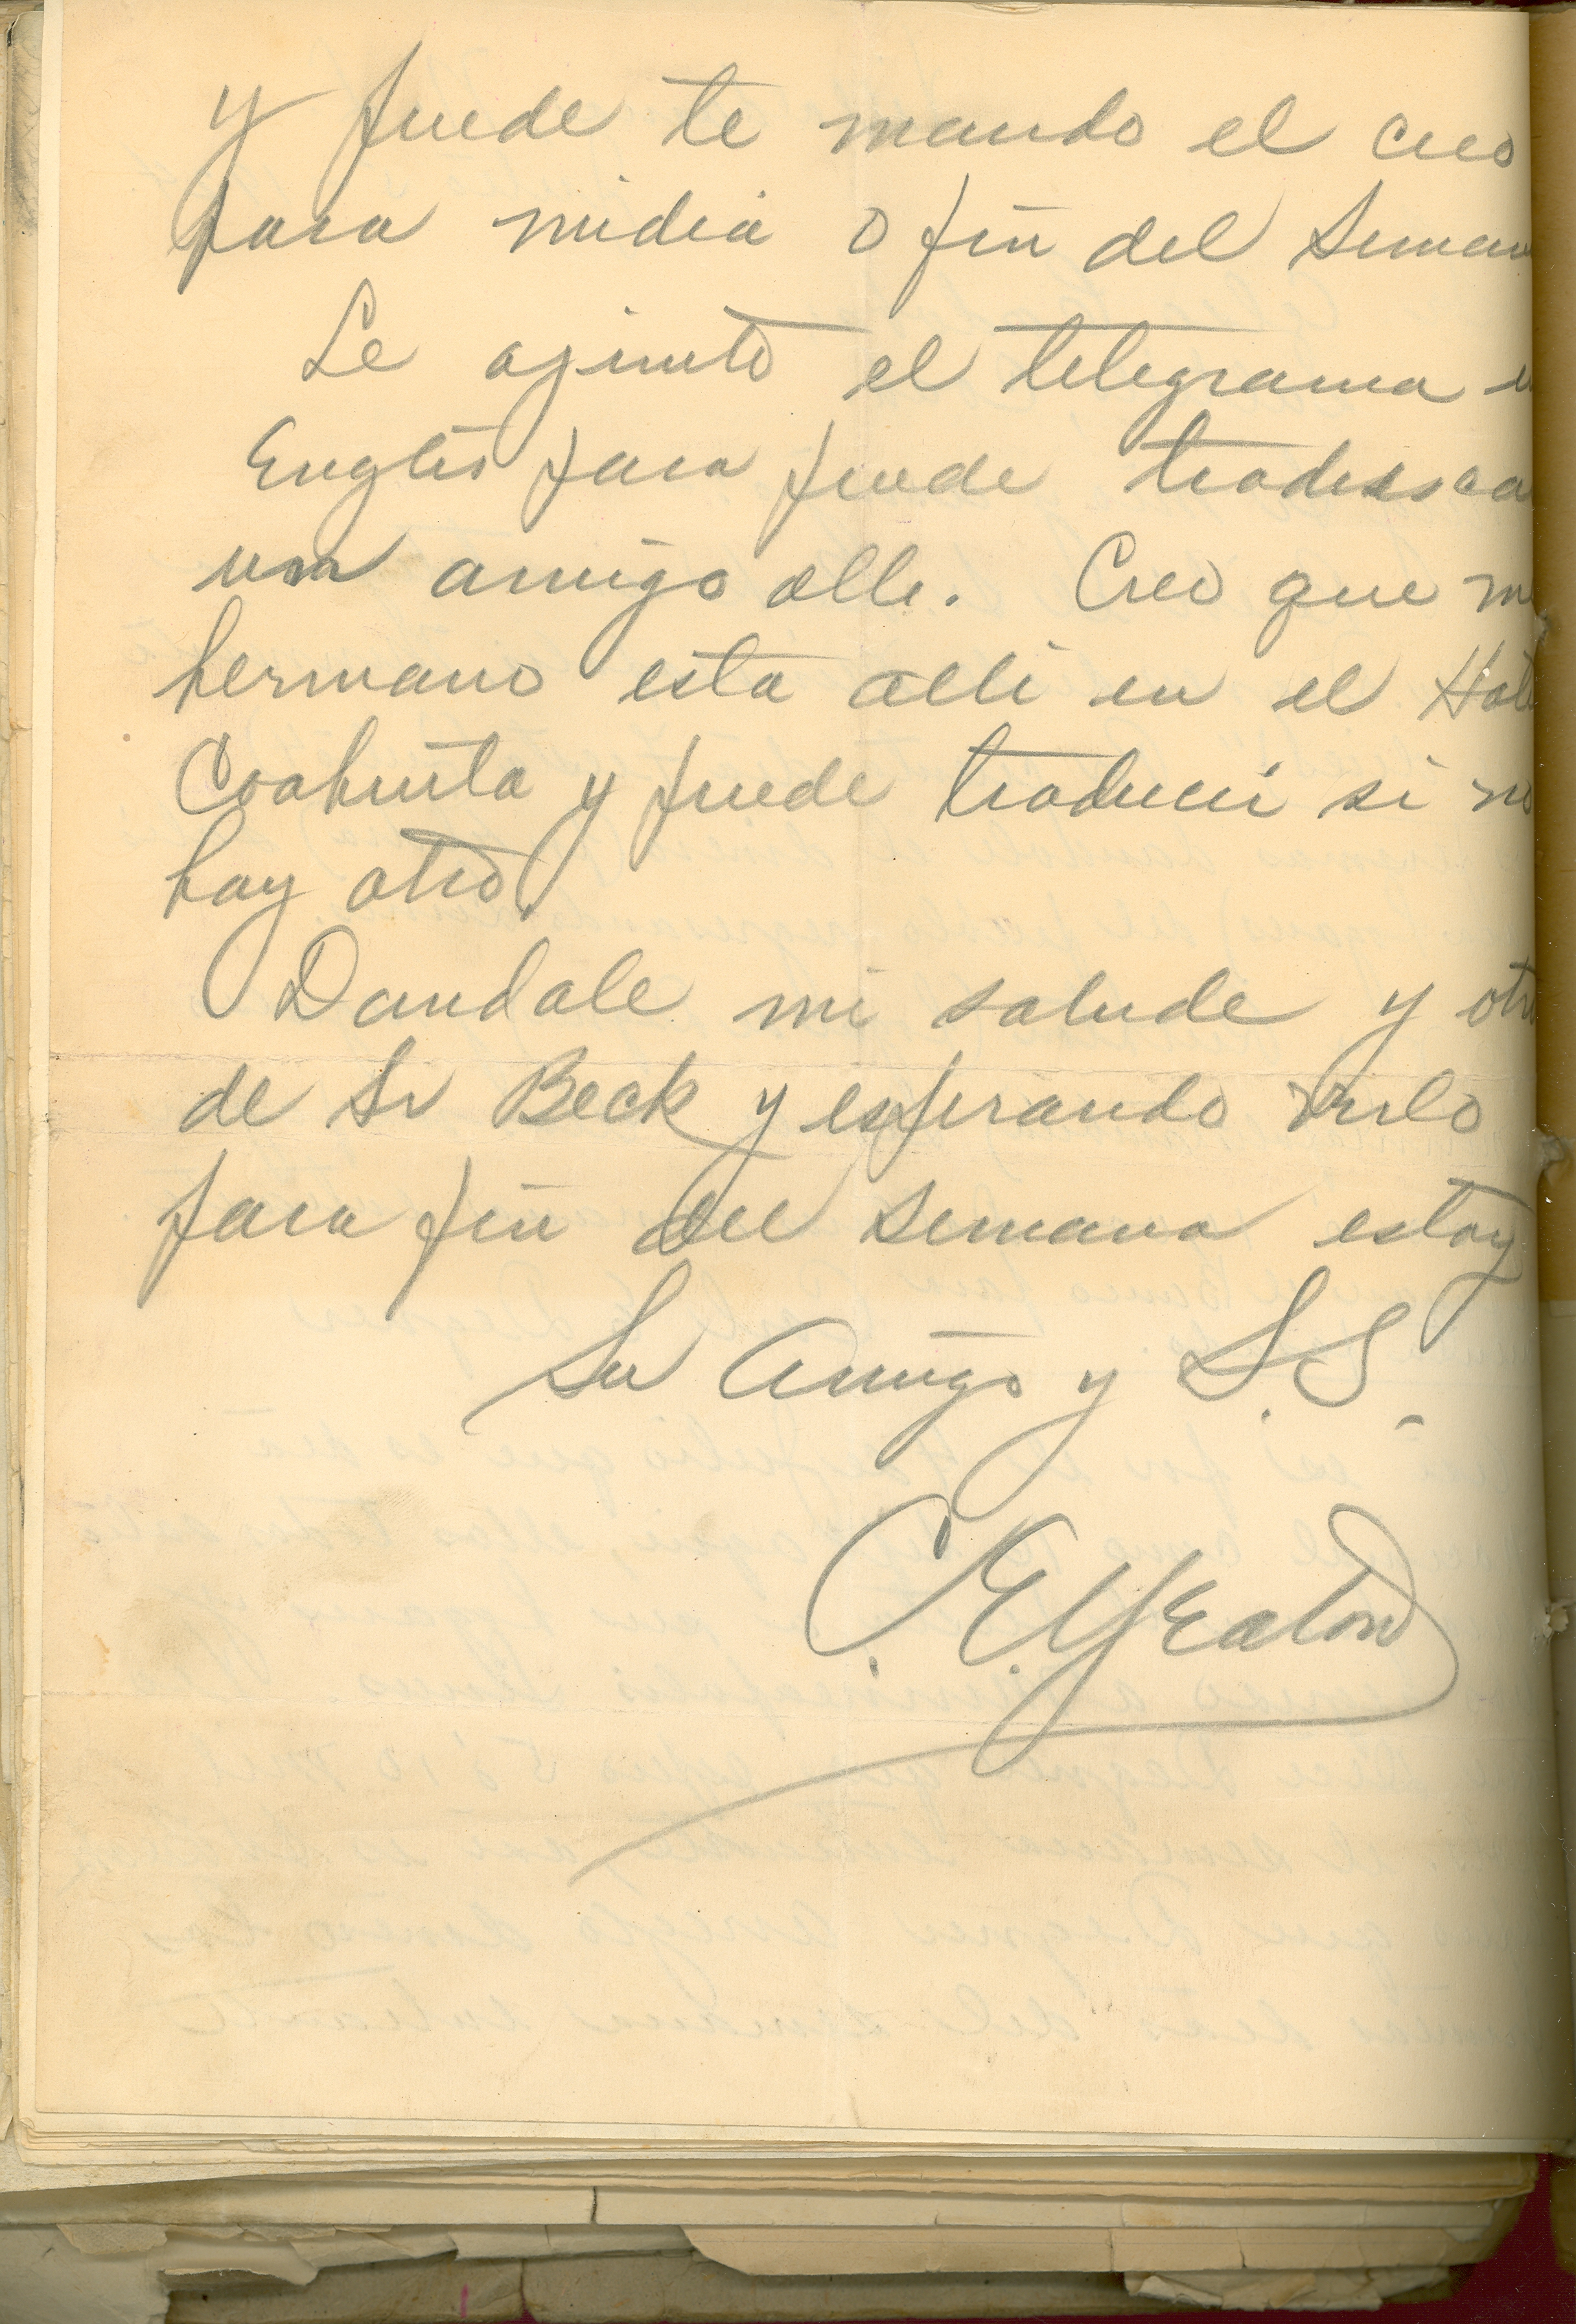 y puede te mando el creo
para midia o fin del Seman
Le ajunto el telegrama e
Engles para puede
un amigo alli. Creo que m
hermano esta alli en el Hote
Coahuila y puede traducir si no
hay otro.
Dandale mi salude y otr
de Sr Beck y esperando verlo
para fin del Semana estoy
Su Amigo y S.S.
C. E. Yeaton